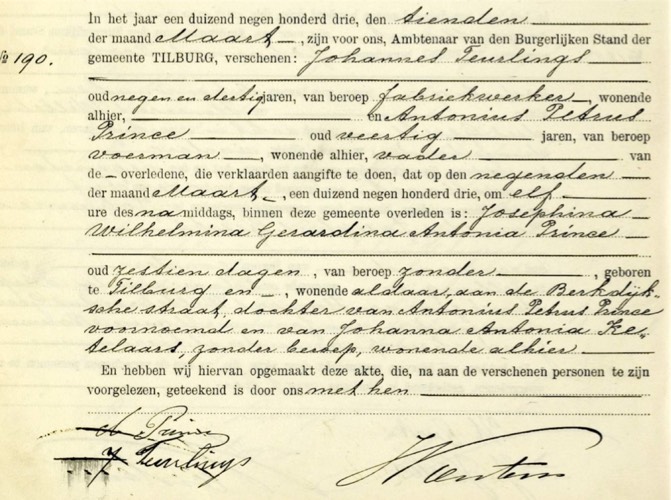 In het jaar een duizend negen honderd drie, den tienden
der maand Maart, zijn voor ons, Ambtenaar van den Burgerlijken Stand der
№ 190.
gemeente TILBURG, verschenen: Johannes Teurlings
oud negen en dertig jaren, van beroep fabriekwerker, wonende
alhier, en Antonius Petrus
Prince oud veertig jaren, van beroep
voerman, wonende alhier, vader van
de overledene, die verklaarden aangifte te doen, dat op den negenden
der maand Maart, een duizend negen honderd drie, om elf
ure des namiddags, binnen deze gemeente overleden is: Josephina
Wilhelmina Gerardina Antonia Prince
oud zestien dagen, van beroep zonder, geboren
te Tilburg en, wonende aldaar, aan de Berkdijk-
sche straat, dochter van Antonius Petrus Prince
voornoemd en van Johanna Antonia Ke-
telaars, zonder beroep, wonende alhier
En hebben wij hiervan opgemaakt deze akte, die, na aan de verschenen personen te zijn
voorgelezen, geteekend is door ons met hen
A Prince
J. Teurlings